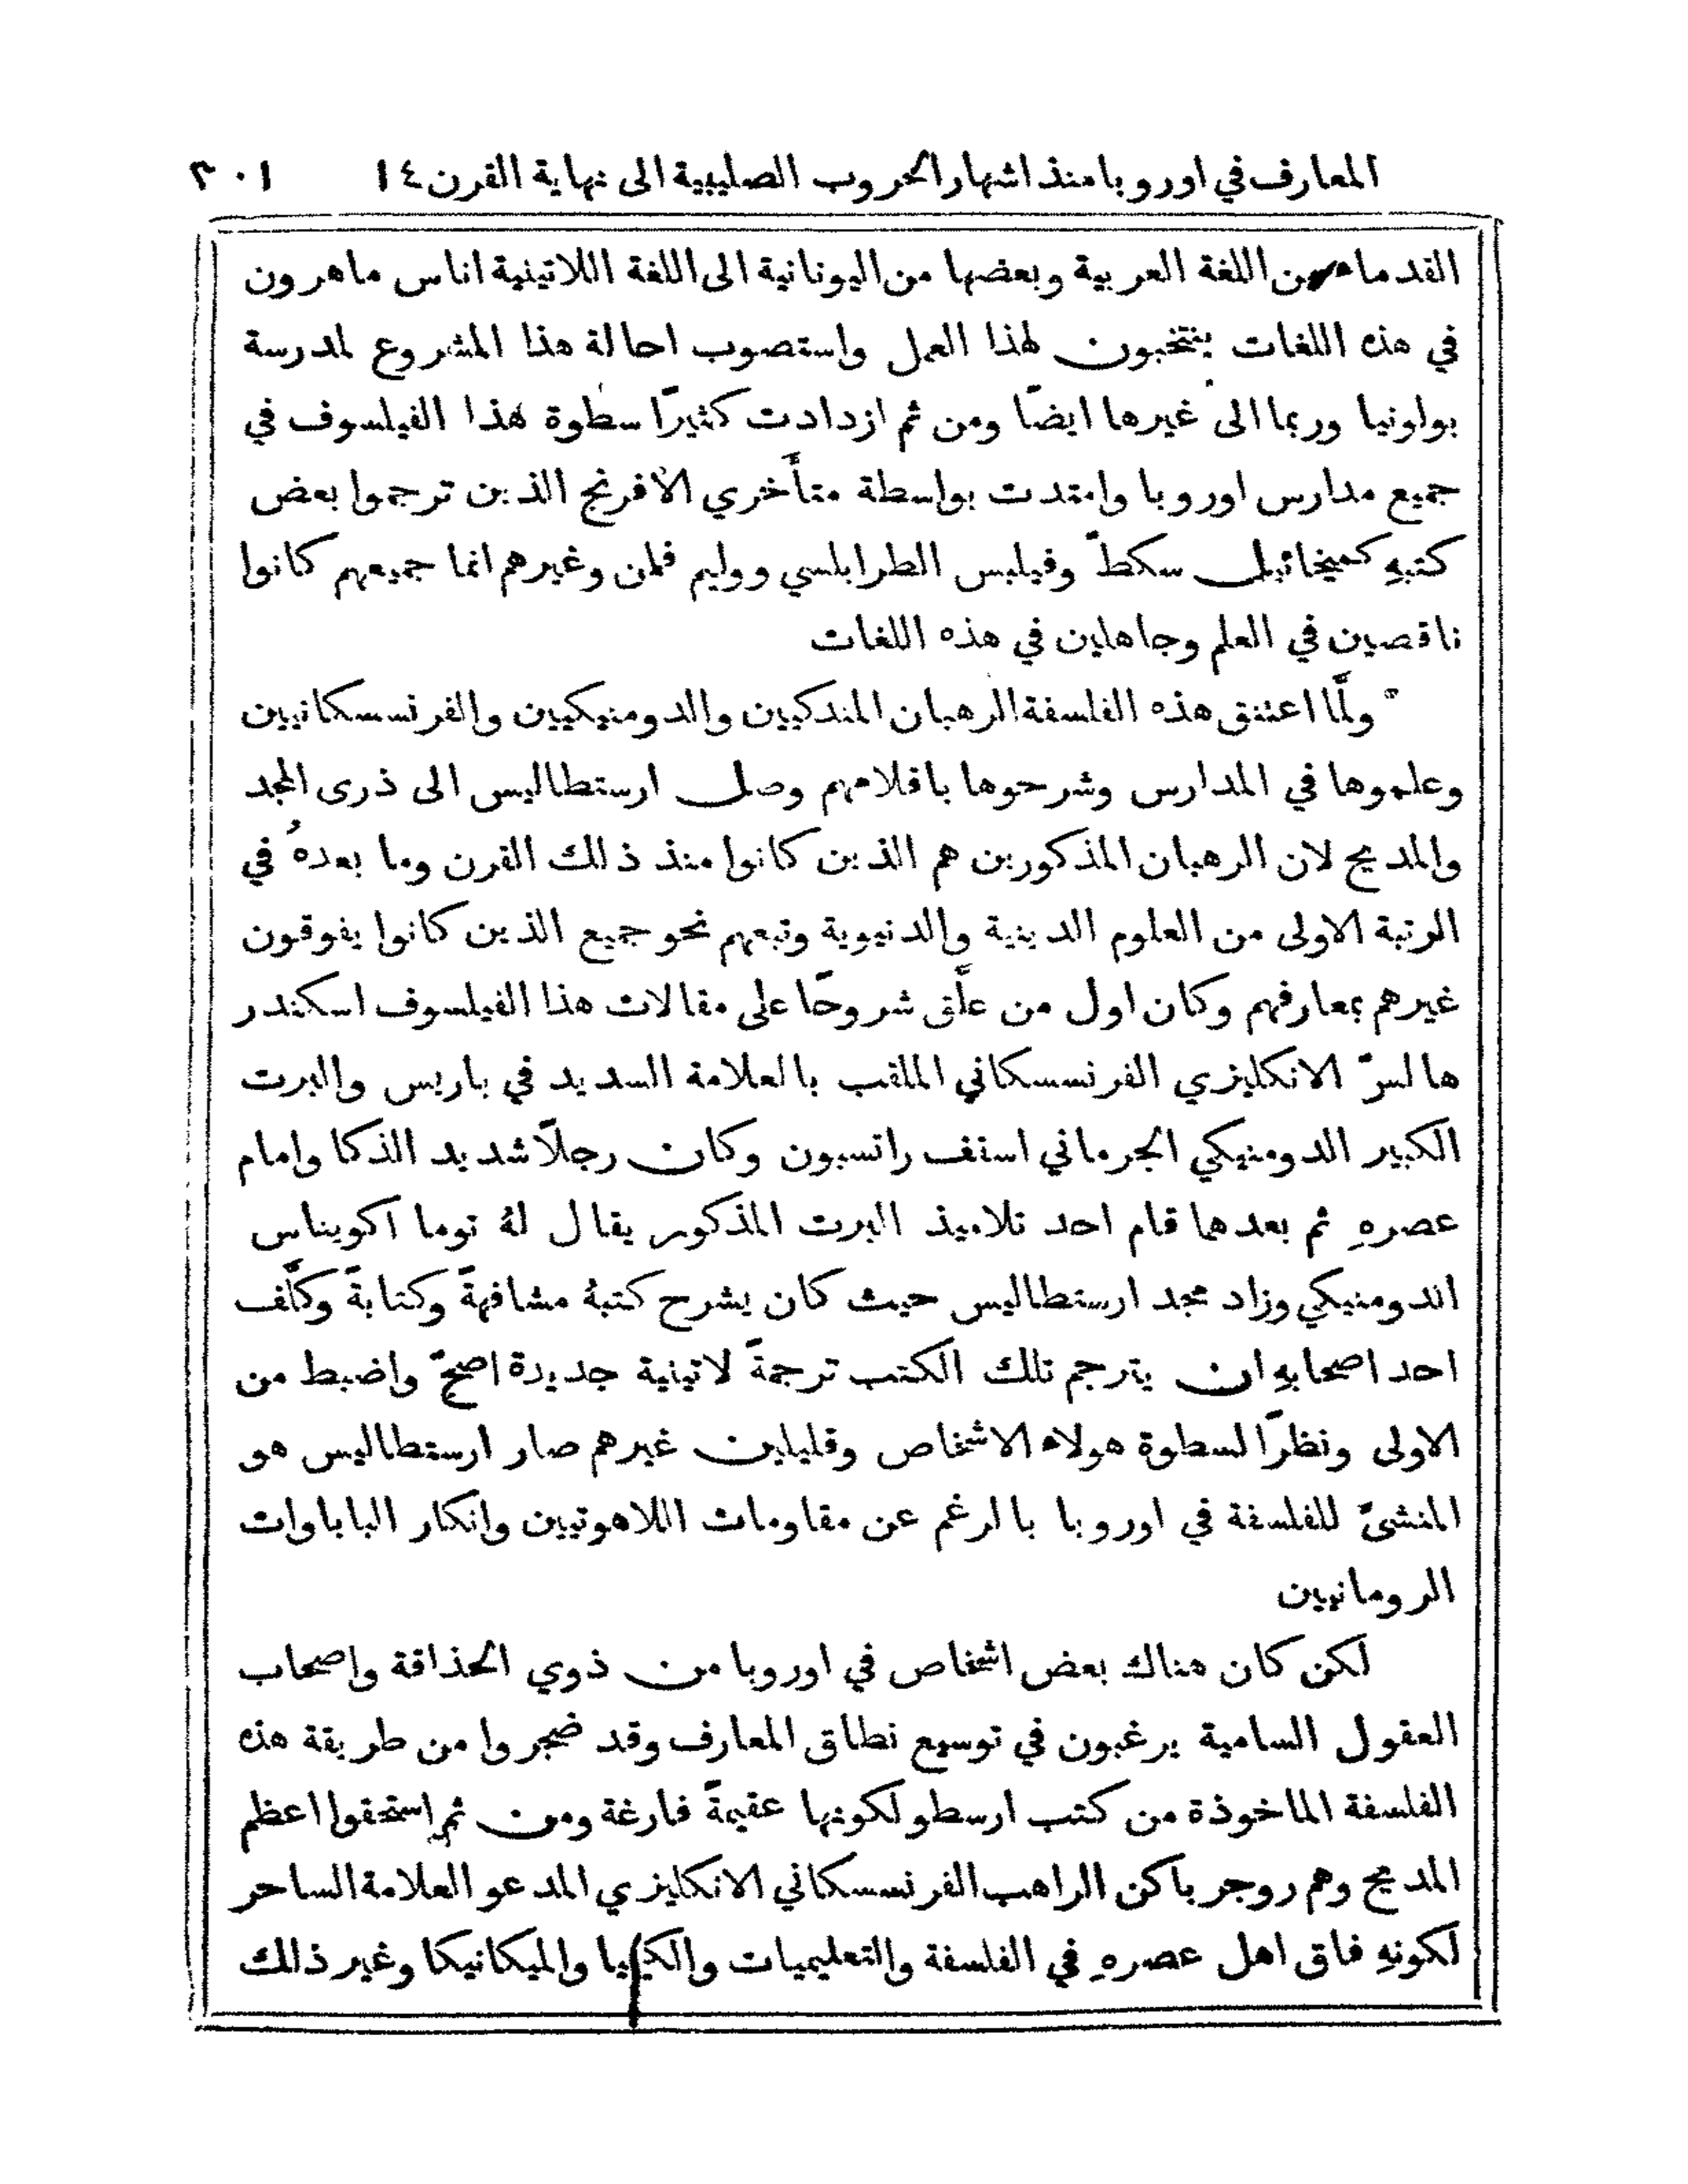 المعارف في اوروبا منذ اشهار الحروب الصليبية الى نهاية القرن ١٤ ٣٠١
القدماء من اللغة العربية وبعضها من اليونانية الى اللغة اللاتينية اناس ماهرون
في هذه اللغات ينتخبون لهذا العمل واستصوب احالة هذا المشروع لمدرسة
بولونيا وربما الى غيرها ايضًا ومن ثم ازدادت كثيرًا سطوة هذا الفيلسوف في
جميع مدارس اوروبا وامتدت بواسطة متأخري الافرنج الذين ترجموا بعض
كتبهِ كميخائيل سكطّ وفيلبس الطرابلسي ووليم فلمن وغيرهم انما جميعهم كانوا
ناقصين في العلم وجاهلين في هذه اللغات
ولمَّا اعتنق هذه الفلسفة الرهبان المندكيين والدومنيكيين والفرنسسكانيين
وعلموها في المدارس وشرحوها باقلامهم وصل ارسطاليس الى ذرى المجد
والمديح لان الرهبان المذكورين هم الذين كانوا منذ ذلك القرن وما بعدهُ في
الرتبة الاولى من العلوم الدينية والدنيوية وتبعهم نحو جميع الذين كانوا يفوقون
غيرهم بمعارفهم وكان اول من علَّق شروحًا على مقالات هذا الفيلسوف اسكندر
هالسّ الانكليزي الفرنسسكاني الملقب بالعلامة السديد في باريس والبرت
الكبير الدومنيكي الجرماني اسقف راتسبون وكان رجلًا شديد الذكا وامام
عصرهِ ثم بعدهما قام احد تلاميذ البرت المذكور يقال لهُ توما اكويناس
الدومنيكي وزاد مجد ارستطاليس حيث كان يشرح كتبهُ مشافهةً وكتابةً وكلَّف
احد اصحابهِ ان يترجم تلك الكتب ترجمةً لاتينية جديدة اصحّ واضبط من
الاولى ونظرًا لسطوة هولاء الاشخاص وقليلين غيرهم صار ارستطاليس هو
المنشئ للفلسفة في اوروبا بالرغم عن مقاومات اللاهوتيين وانكار الباباوات
الرومانيين
لكن كان هناك بعض اشخاص في اوروبا من ذوي الحذاقة واصحاب
العقول السامية يرغبون في توسيع نطاق المعارف وقد ضجروا من طريقة هذه
الفلسفة الماخوذة من كتب ارسطو لكونها عقيمةً فارغة ومن ثم استحقوا اعظم
المديح وهم روجر باكن الراهب الفرنسسكاني الانكليزي المدعو العلامة الساحر
لكونهِ فاق اهل عصرهِ في الفلسفة والتعليميات والكيميا والميكانيكا وغير ذلك